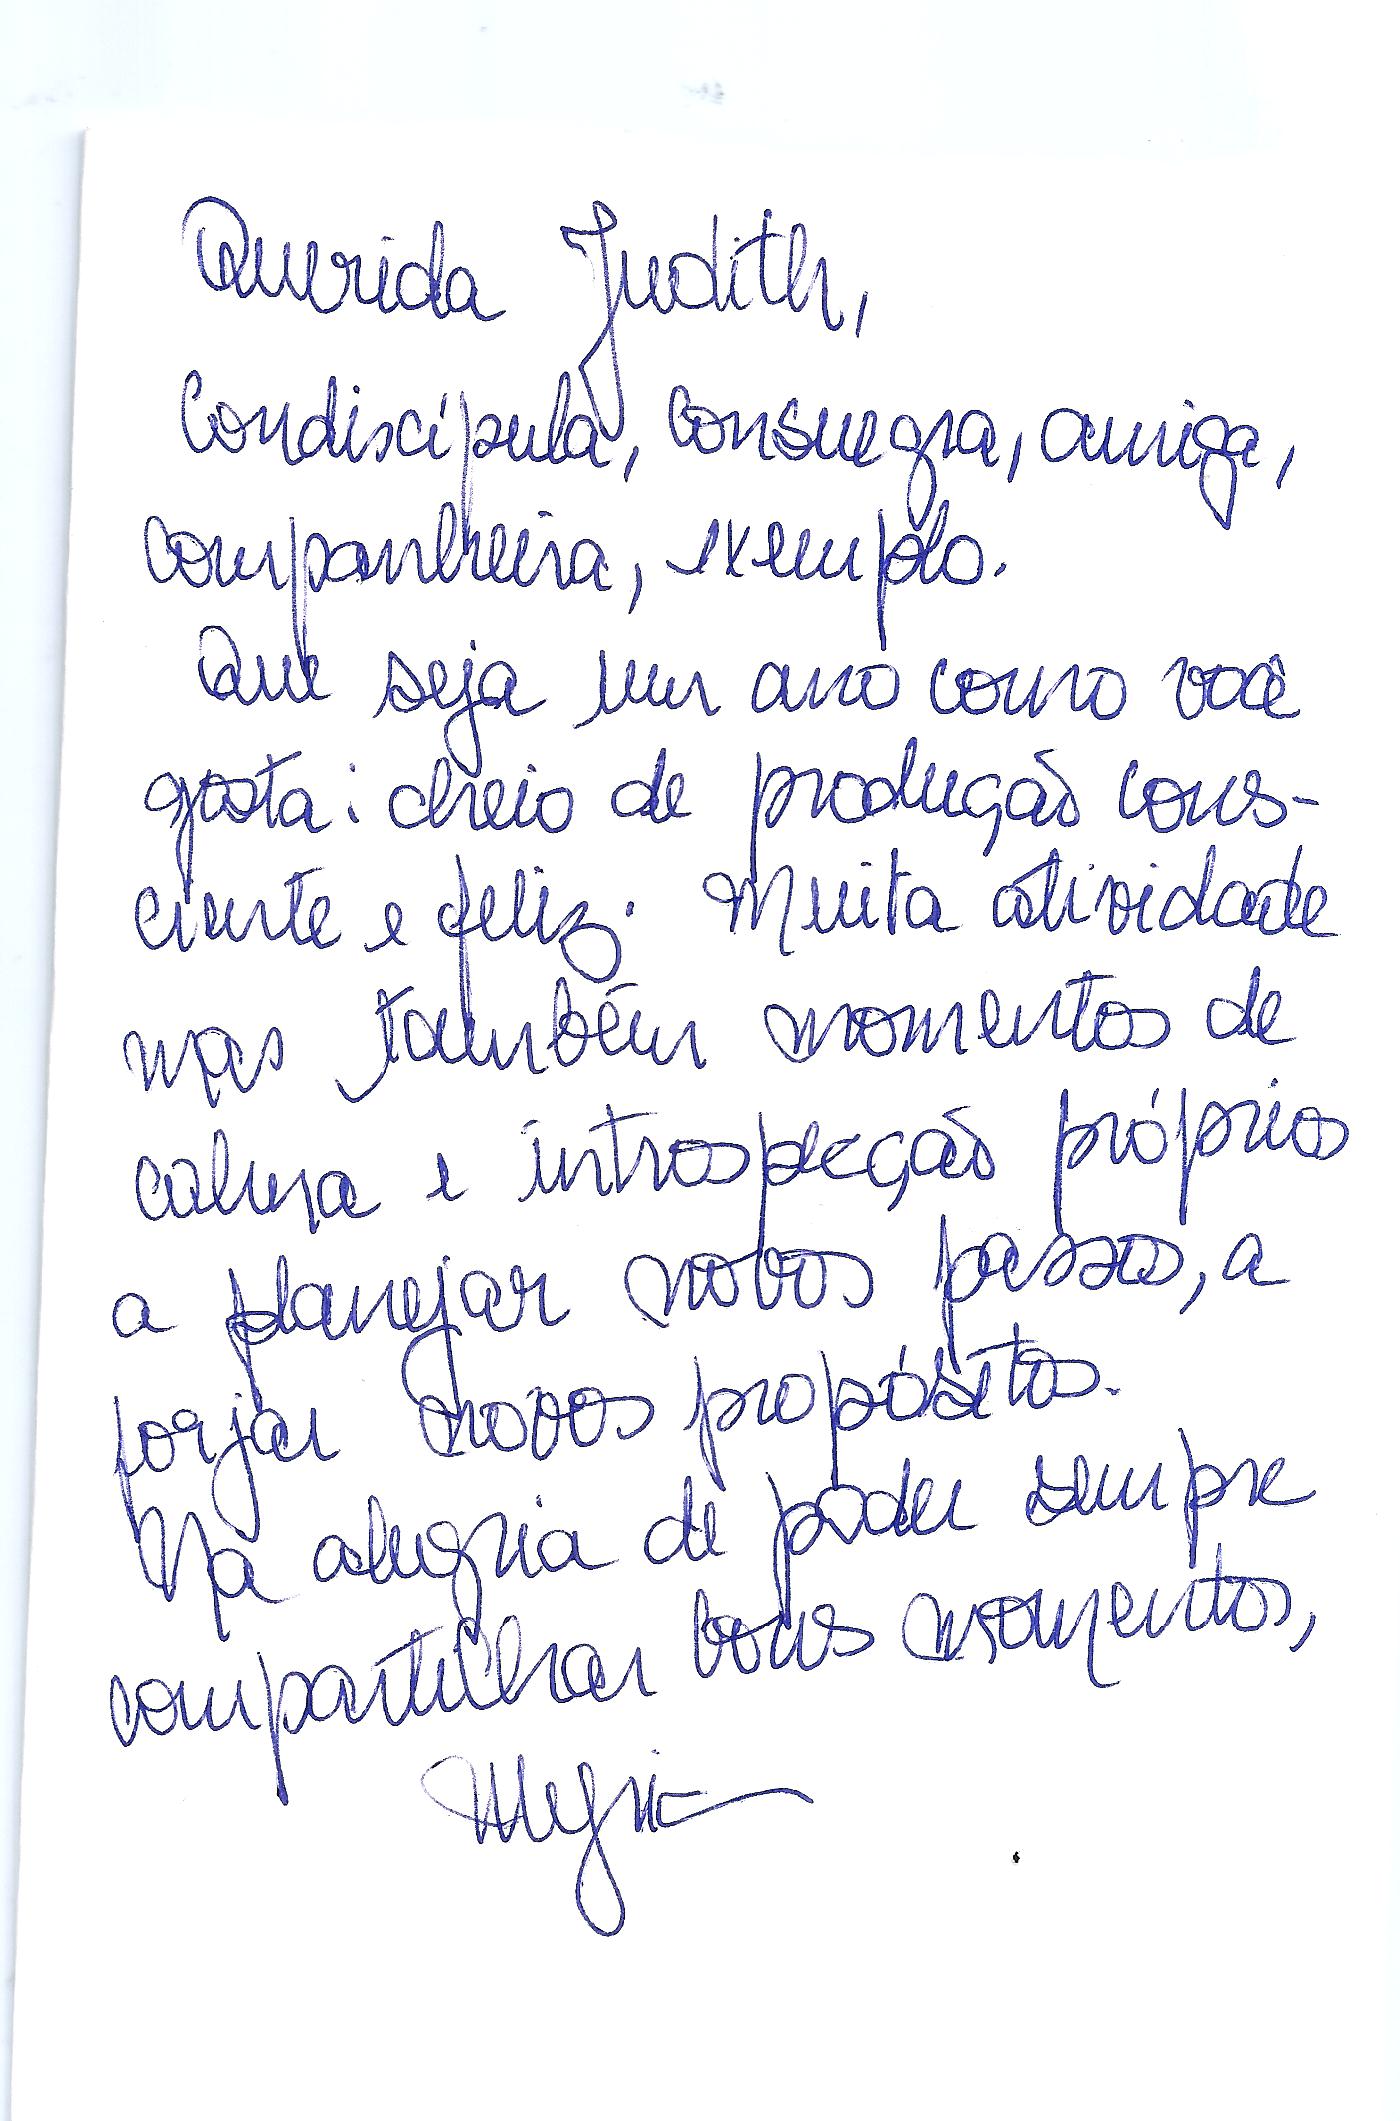 Querida Judith,
condiscípula, consuegra, amiga,
companheira, exemplo.
Que seja um ano como você
gosta: cheio de produção cons-
ciente e feliz. Muita atividade
mas também momentos de
calma e introspecção próprios
a planejar novos passos, a
forjar novos propósitos.
Na alegria de poder sempre
compartilhar bons momentos,